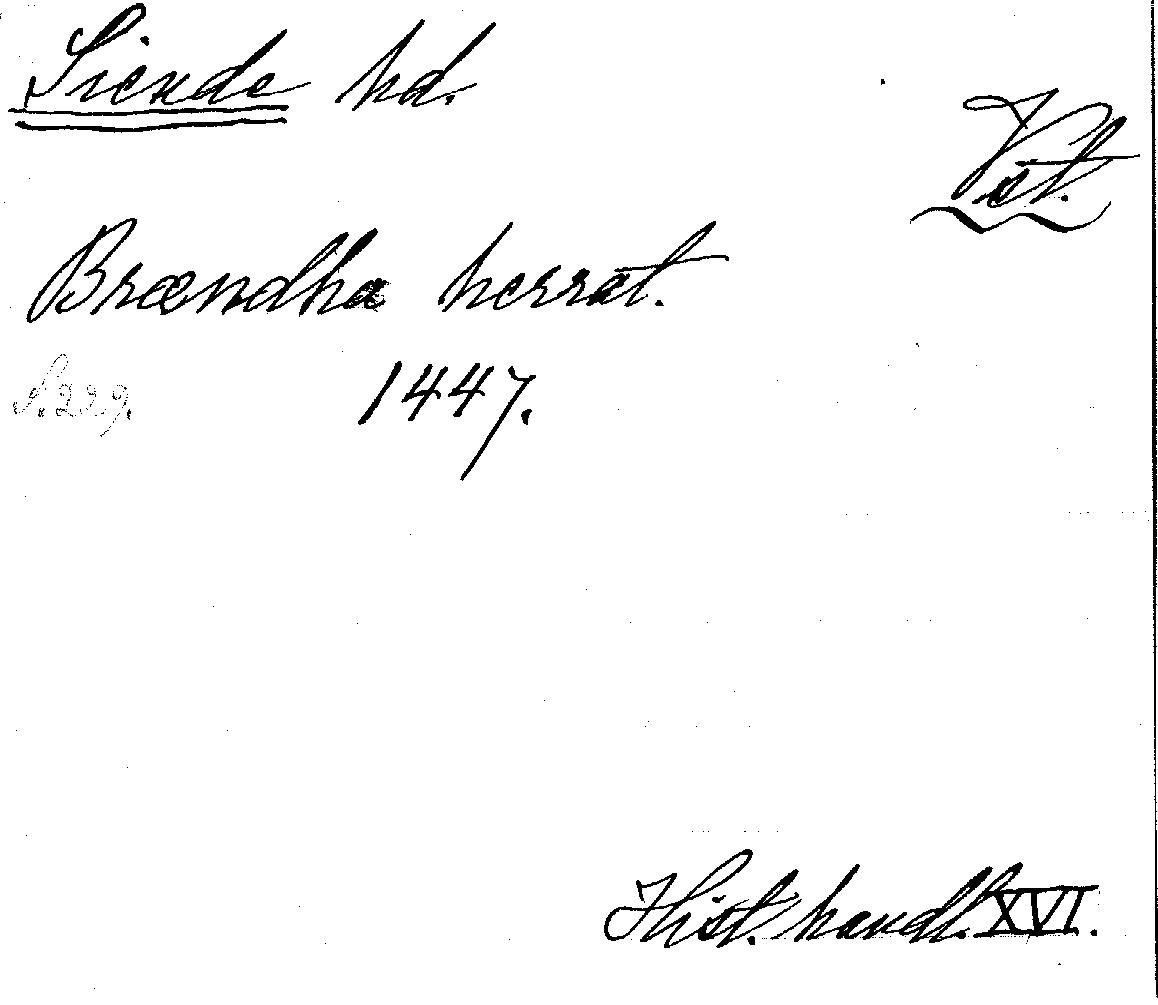 Siende hd.
Vst.
Brændha herrat.
S. 229.
1447.
Hist. handl. XVI.